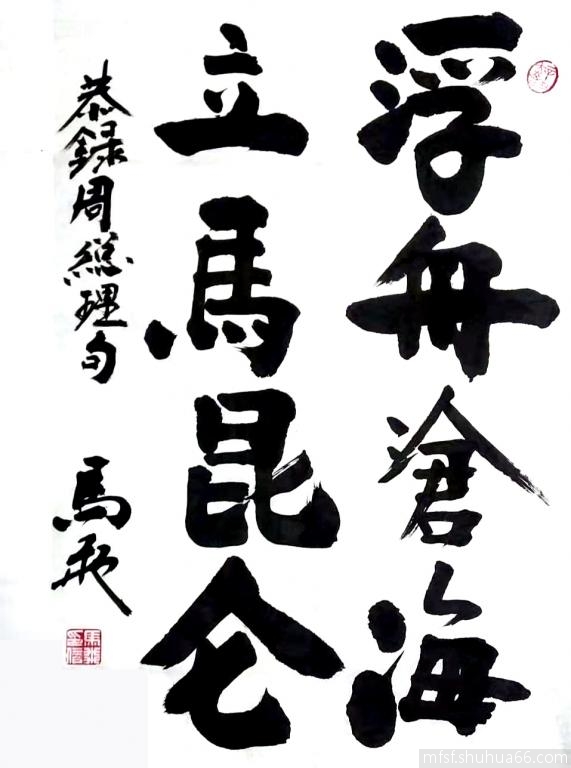 浮舟滄海
立馬昆仑
恭録周總理句
馬
mfsf.shuhua66.com